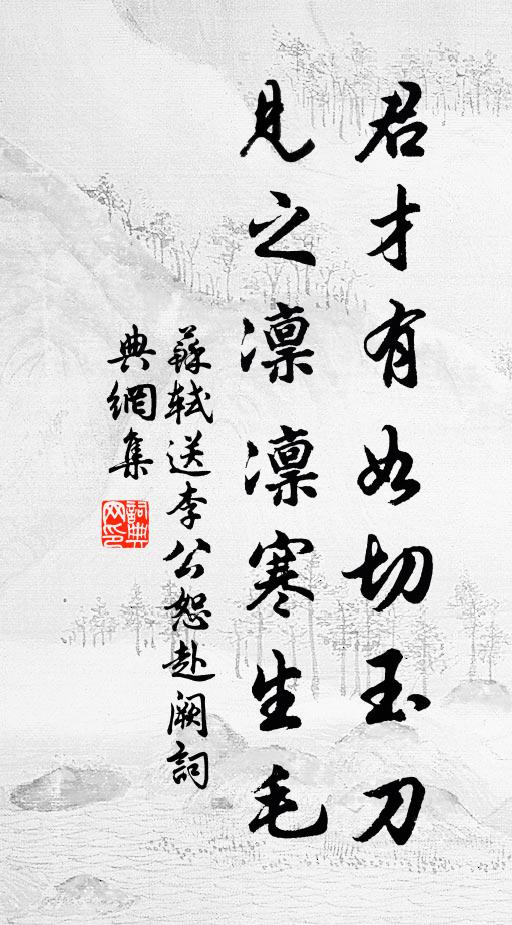 君才有如切玉刀
見之凜凜寒生毛
蘇軾送李公恕赴闕詞
典網集
詞典网印